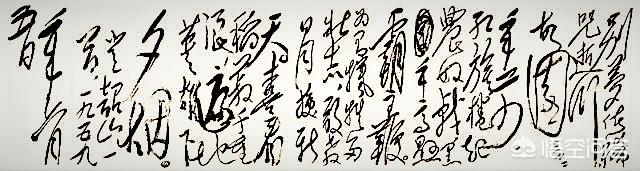 别梦依稀
咒逝川
故园三
红旗卷起
农奴戟黑
手高悬
霸主鞭
为有牺牲多
壮志敢教
日月换新
天喜看
稻菽千重
浪遍地
英雄下
夕烟。
登韶山一
首一九五九
年六月
悟空问答